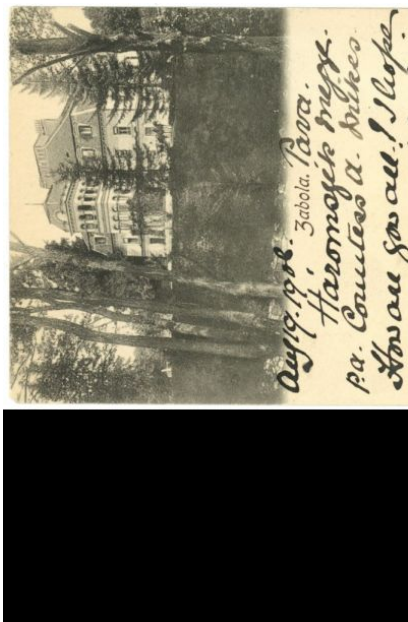 Aug 19. 1908.
Zabola. Páva.
Haromszék megye.
p.a. Countess A. Mikes.
How are you all? I hope